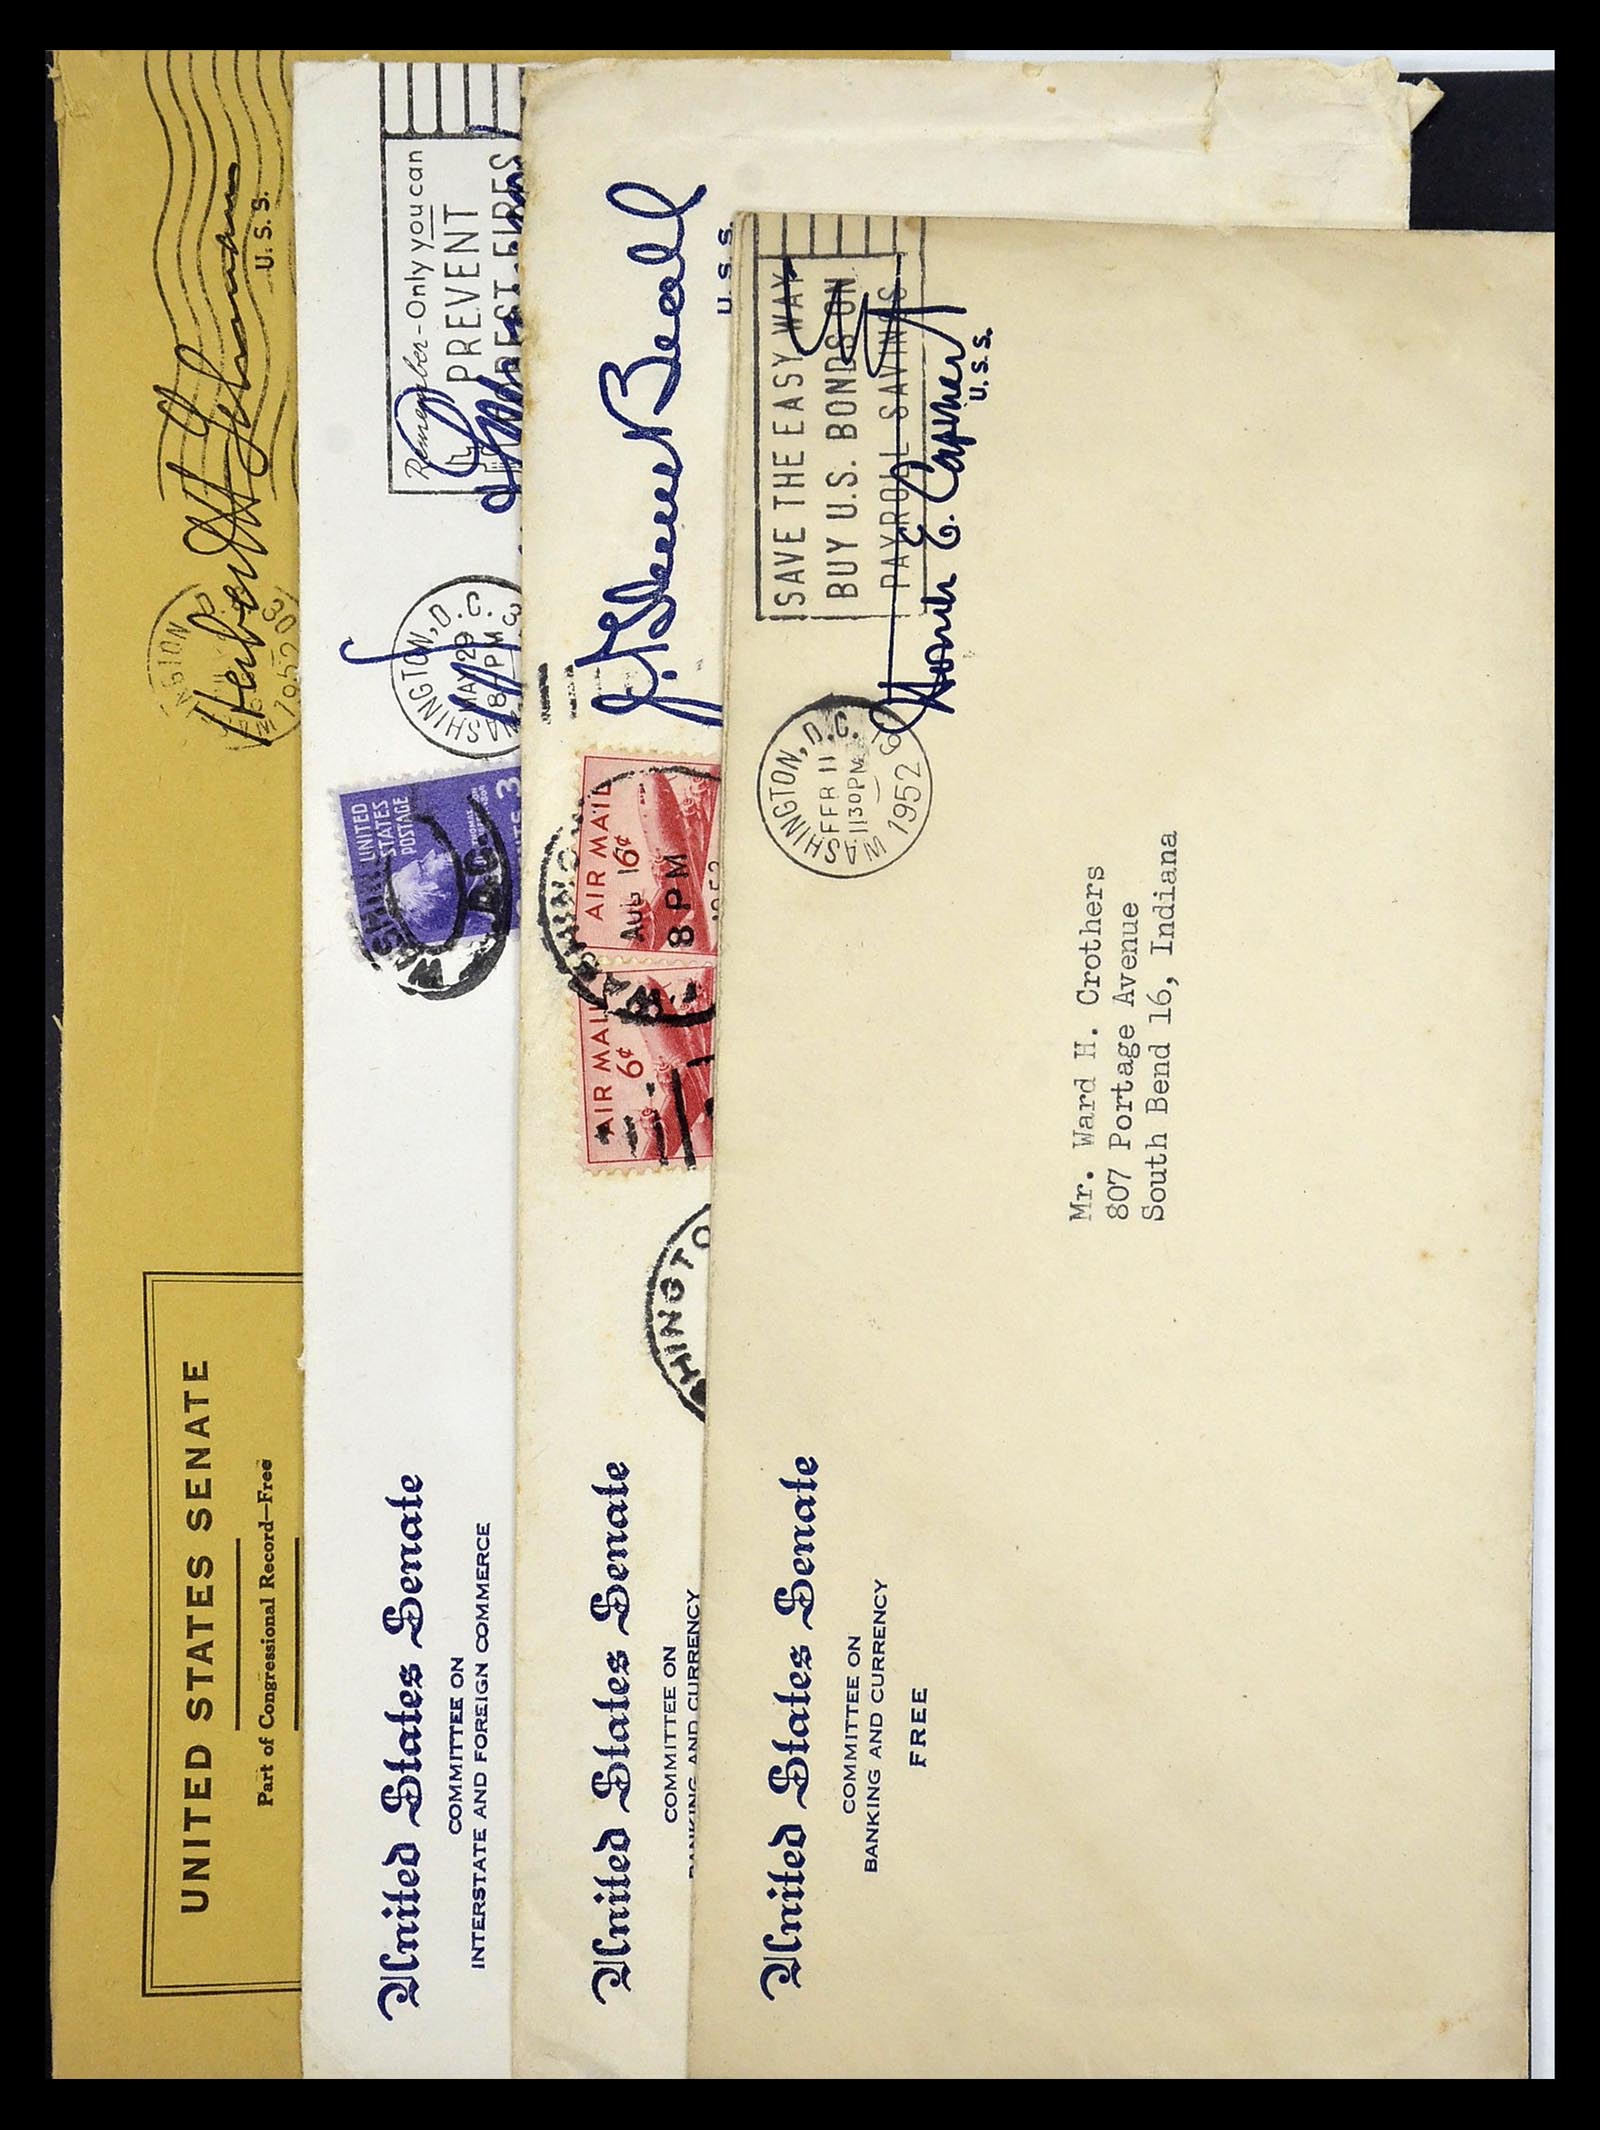 UNITED STATES SENATE
Part of Congressional Record—Free
1952
Herbert H Lehman
U. S. S.
United States Senate
COMMITTEE ON
INTERSTATE AND FOREIGN COMMERCE
UNITED
STATES
POSTAGE
3
WASHINGTON, D.C.
MAY 29
8 PM
Remember-Only you can
PREVENT
FOREST FIRES
United States Senate
COMMITTEE ON
BANKING AND CURRENCY
AIR MAIL
6¢
AIR MAIL
6¢
AUG 1
8 PM
1952
J. Glenn Beall
U. S. S.
United States Senate
COMMITTEE ON
BANKING AND CURRENCY
FREE
WASHINGTON, D.C.
FEB 11
1130 PM
1952
SAVE THE EASY WAY
BUY U.S. BONDS ON
PAYROLL SAVINGS
Homer E. Capehart
U.S.S.
Mr. Ward H. Crothers
807 Portage Avenue
South Bend 16, Indiana